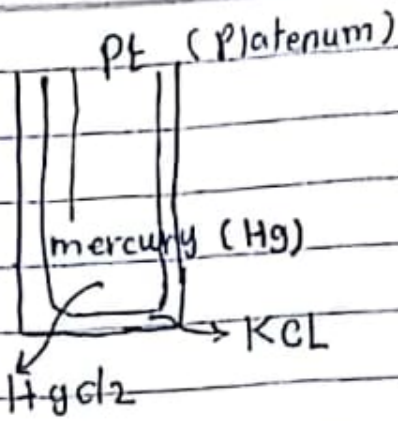 Pt (Platenum)
mercury (Hg)
KCL
Hgcl2